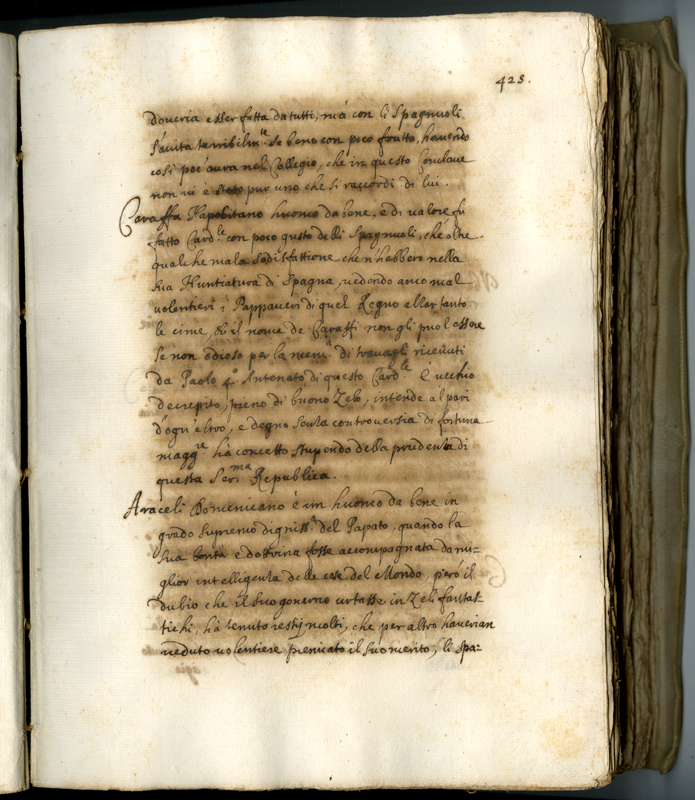 425.
doveria esser fatta da tutti, mà con li Spagnuoli
s'aiuta terribilm.te se bene con poco frutto, havendo
così poc'aura nel Collegio, che in questo Conclave
non vi è stato pur uno che si raccordi di lui.
Caraffa Napolitano huomo da bene, e di valore fu
fatto Card.le con poco gusto delli Spagnuoli, che oltre
qualche mala sodisfattione che n'hebbero nella
sua Nuntiatura di Spagna, vedondo anco mal
volentieri i Pappaveri di quel Regno allar tanto
le cime, et il nome de Caraffi non gli puol essere
se non odioso per la mem.a di travagli ricevuti
da Paolo 4.o Antenato di questo Card.le È vecchio
decrepito, pieno di buono Zelo, intende al pari
d'ogn'altro, e degno senza controversia di fortuna
magg.re hà concetto stupendo della prudenza di
questa Ser.ma Republica.
Araceli Domenicano è un huomo da bene in
grado supremo digniss.o del Papato, quando la
sua bontà e dottrina fosse accompagnata da mi-
glior intelligenza delle cose del Mondo, però il
dubio che il suo governo urtasse in Zeli fantas-
tichi, hà tenuto molti, che per altro haverian
veduto volentiere premiato il suo merito, li Spa-